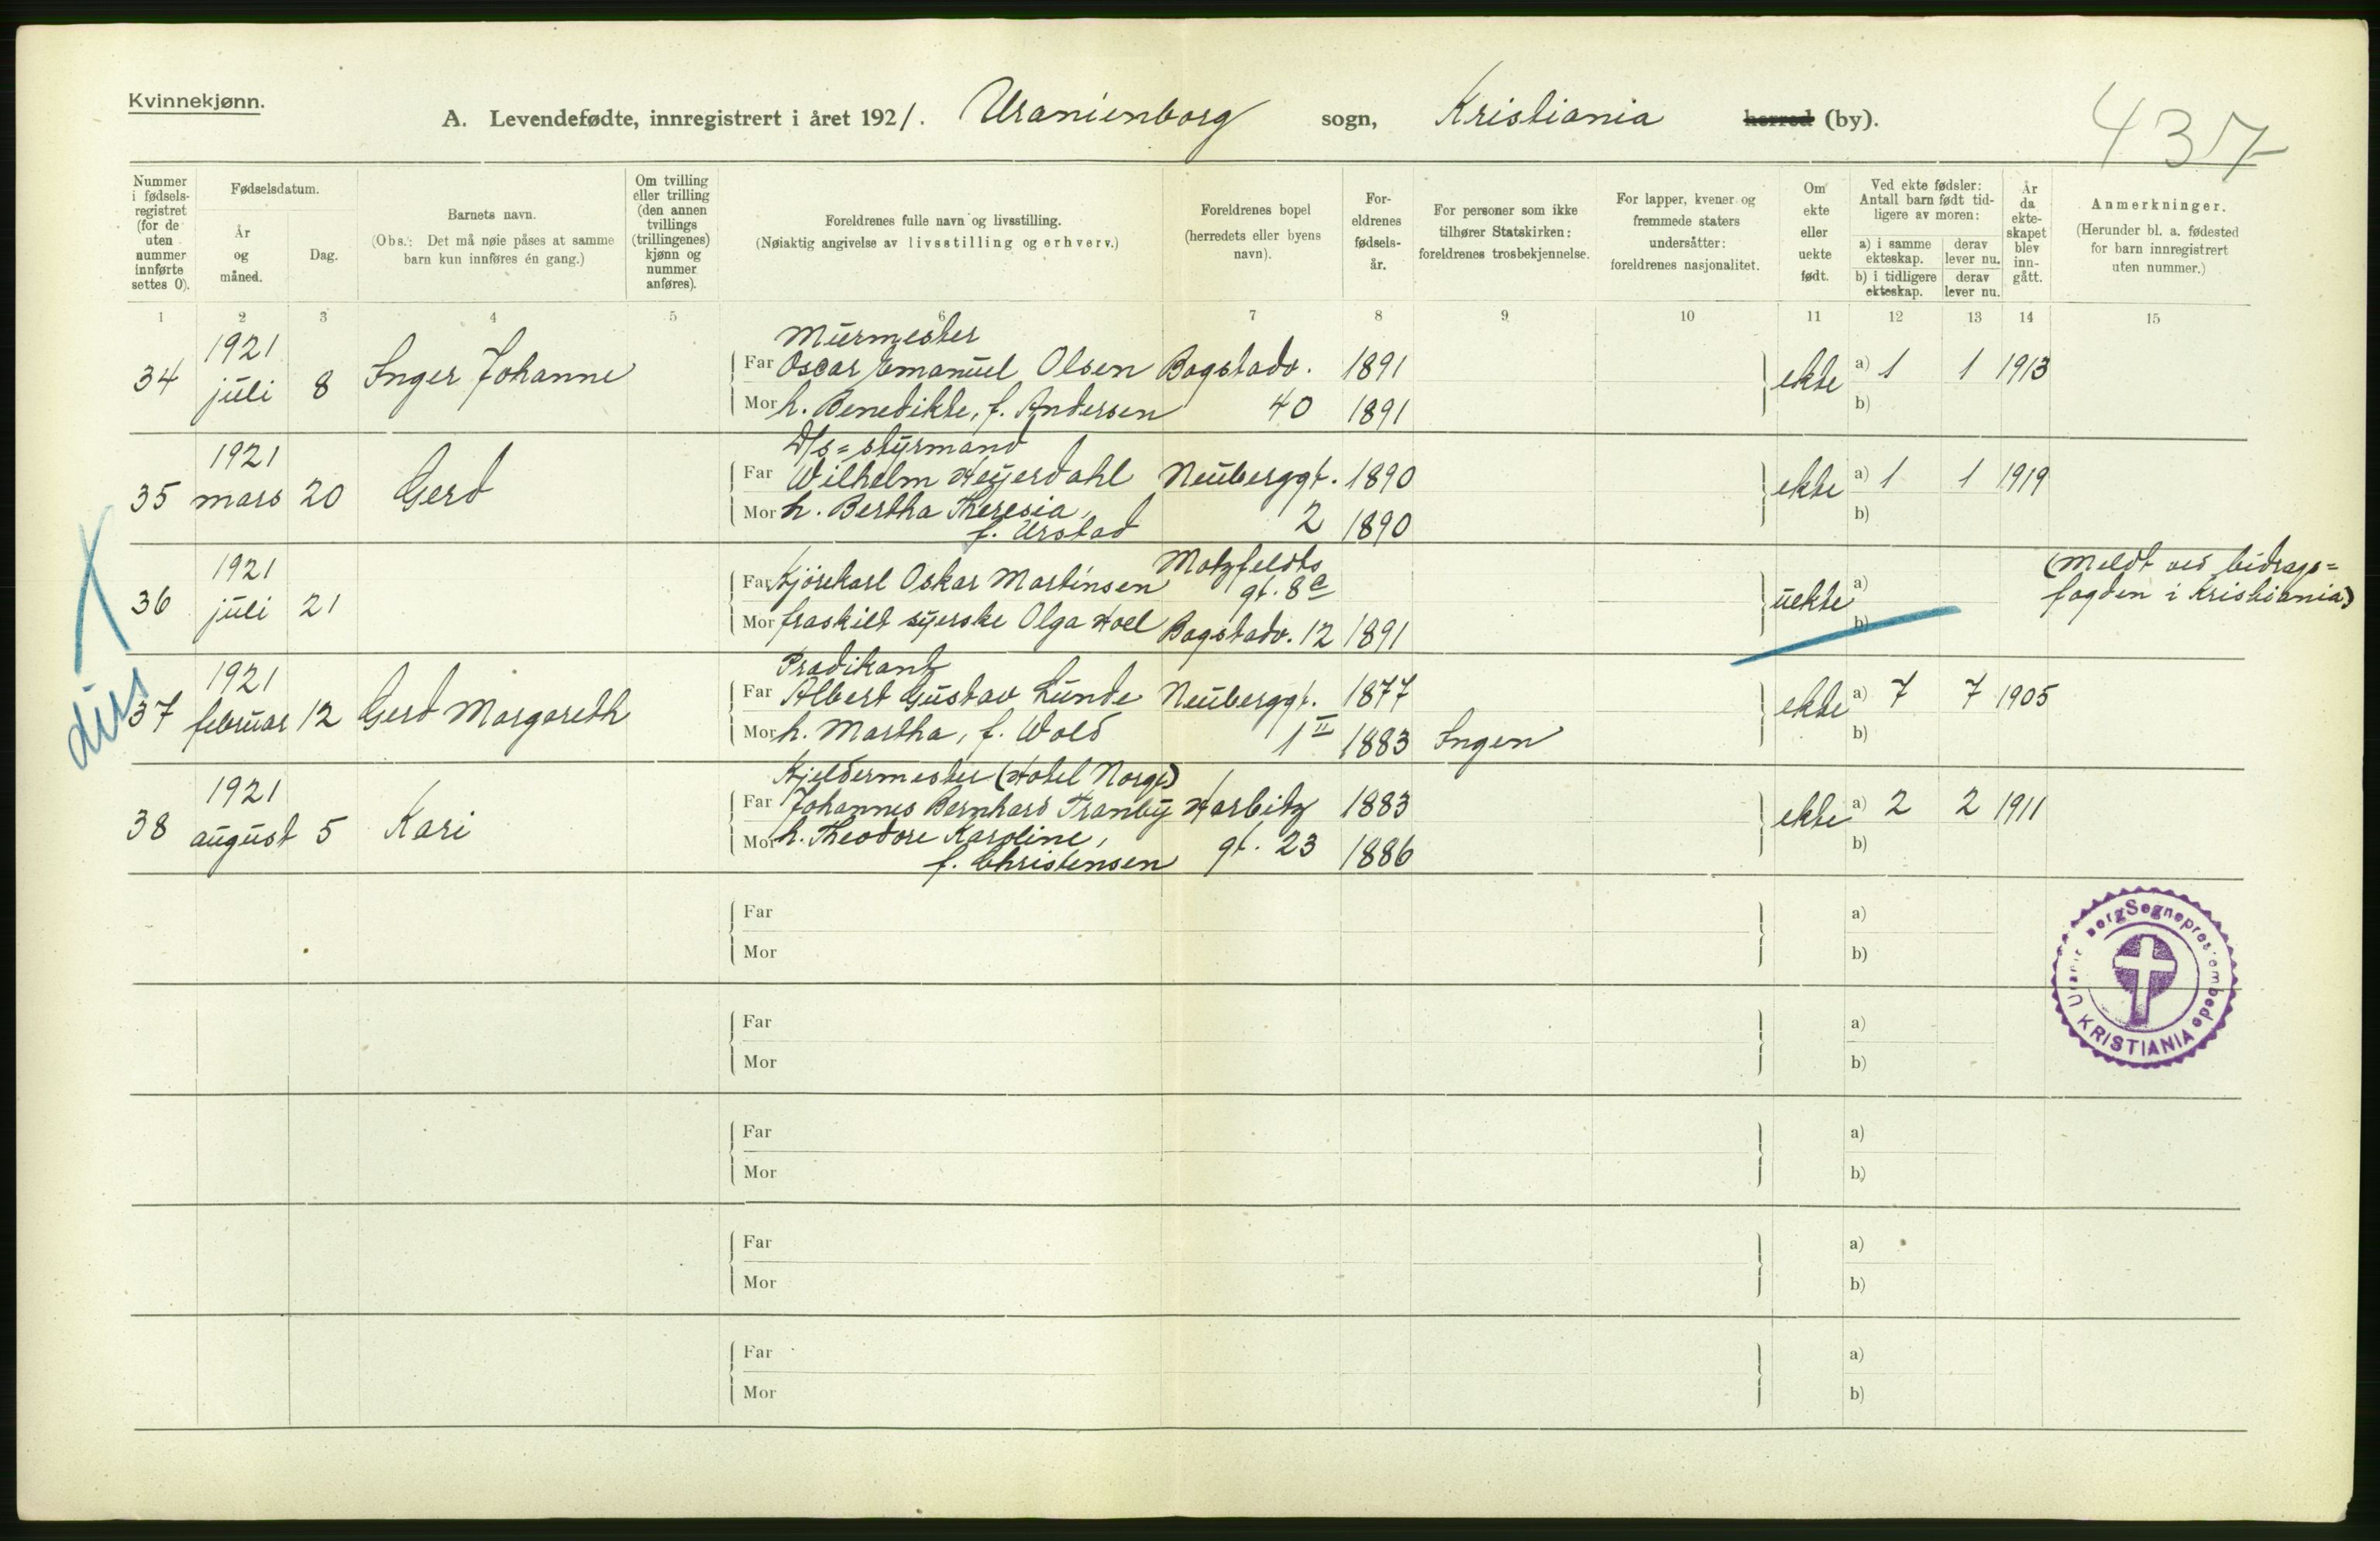 Kvinnekjønn.
A. Levendefødte, innregistrert i året 1921. Uranienborg sogn, Kristiania herred (by).
437
Nummer i fødsels-registret (for de uten nummer innførte settes 0).
Fødselsdatum.
År og måned.
Dag.
Barnets navn.
(Obs.: Det må nøie påses at samme barn kun innføres én gang.)
Om tvilling eller trilling (den annen tvillings (trillingenes) kjønn og nummer anføres).
Foreldrenes fulle navn og livsstilling.
(Nøiaktig angivelse av livsstilling og erhverv.)
Foreldrenes bopel (herredets eller byens navn).
For-eldrenes fødsels-år.
For personer som ikke tilhører Statskirken: foreldrenes trosbekjennelse.
For lapper, kvener og fremmede staters undersåtter: foreldrenes nasjonalitet.
Om ekte eller uekte født.
Ved ekte fødsler: Antall barn født tid-ligere av moren:
a) i samme ekteskap.
derav lever nu.
b) i tidligere ekteskap.
derav lever nu.
År da ekte-skapet blev inn-gått.
Anmerkninger.
(Herunder bl. a. fødested for barn innregistrert uten nummer.)
1 2 3 4 5 6 7 8 9 10 11 12 13 14 15
Murmester
34 1921 juli 8 Inger Johanne Far Oscar Emanuel Olsen Bogstadv. 1891 ekte a) 1 1 1913
Mor h. Benedikte, f. Andersen 40 1891 b)
D/s=styrmand
35 1921 mars 20 Gerd Far Wilhelm Heyerdahl Neuberggt. 1890 ekte a) 1 1 1919
Mor h. Bertha Theresia, 2 1890 b)
f. Urstad
36 1921 juli 21 Far Kjørekarl Oskar Martinsen Motzfeldts gt. 8c uekte a) (Meldt ved bidrags=
Mor fraskilt syerske Olga Hoel Bogstadv. 12 1891 b) fogden i Kristiania)
Prædikant
37 1921 februar 12 Gerd Margareth Far Albert Gustav Lunde Neuberggt. 1877 ekte a) 7 7 1905
Mor h. Martha, f. Wold 1 II 1883 Ingen b)
Kjeldermester (Hotel Norge)
38 1921 august 5 Kari Far Johannes Bernhard Tranby Harbitz 1883 ekte a) 2 2 1911
Mor h. Theodore Karoline, gt. 23 1886 b)
f. Christensen
Far a)
Mor b)
Far a)
Mor b)
Far a)
Mor b)
Far a)
Mor b)
Far a)
Mor b)
KRISTIANIA